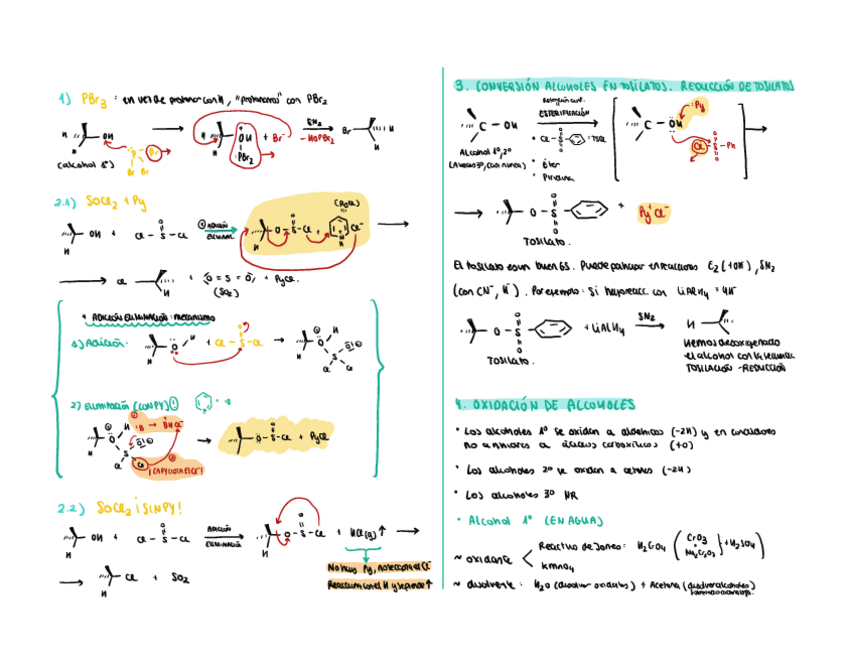 1) PBr3 : en vez de protonar con H, "protonamos" con PBr2
H OH
H
(alcohol 1º)
P Br
Br Br
H OH + Br⁻
PBr2
SN2
- HOPBr2
Br H
H
2.1) SOCl2 + Py
OH + Cl - S - Cl
O
H
① Adición
Eliminac.
O - S - Cl
(PyCl)
Cl⁻
Cl + O = S = O + PyCl
(SO2)
H
* Adición eliminación: mecanismo
1) Adición:
O H + Cl - S - Cl
2) Eliminación (con PY)
:B
O - S - Cl + PyCl
2.2) SOCl2 ¡SIN PY!
OH + Cl - S - Cl
H
Adición
Eliminación
O - S - Cl + HCl(g) ↑
Cl + SO2
H
No hay Py, no secapta el Cl⁻
Reacciona con el H y se pierde ↑
3. CONVERSIÓN ALCOHOLES EN TOSILATOS. REDUCCIÓN DE TOSILATOS
C - OH
Alcohol 1º, 2º
Retención conf.
ESTERIFICACIÓN
• Cl - S : TSCl
• Éter
• Piridina
C - OH :Py
Cl - S - Ph
O - S + Py⁺Cl⁻
TOSILATO.
El tosilato es un buen GS. Puede participar en reacciones E2 (+OH⁻), SN2
(con CN⁻, H⁻). Por ejemplo: Si hay reacc. con LiAlH4 = 4H⁻
O - S + LiAlH4
SN2
H
TOSILATO.
Hemos desoxigenado
el alcohol con la secuencia
TOSILACIÓN - REDUCCIÓN
4. OXIDACIÓN DE ALCOHOLES
• Los alcoholes 1º se oxidan a aldehídos (-2H) y en condiciones
no anhidras a ácidos carboxílicos (+O)
• Los alcoholes 2º se oxidan a cetonas (-2H)
• Los alcoholes 3º NR
• Alcohol 1º (EN AGUA)
~ oxidante
Reactivo de Jones: H2CrO4 (CrO3
Na2Cr2O7 + H2SO4)
KMnO4
~ disolvente: H2O (disolver oxidantes) + Acetona (disolver alcoholes)